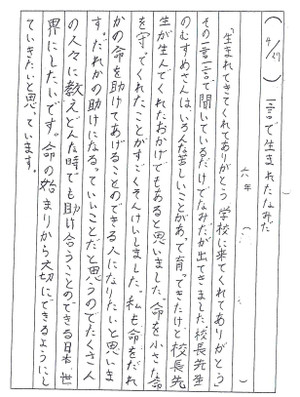 (4/27) 一言で生まれたなみだ
六年 ( )
「生まれてきてくれてありがとう 学校に来てくれてありがとう」
その一言一言で聞いているだけでなみだが出てきました。校長先生
のむすめさんは、いろんな苦しいことがあって育ってきたけど校長先
生が生んでくれたおかげでもあると思いました。命を小さな命
を守ってくれたことがすごくきんけいしました。私も命をだれ
かの命を助けてあげることのできる人になりたいと思いま
す。だれかの助けになるっていいことだと思うのでたくさん
の人々に教えどんな時でも助け合うことのできる日本、世
界にしたいです。命の始まりから大切にできるようにし
ていきたいと思っています。